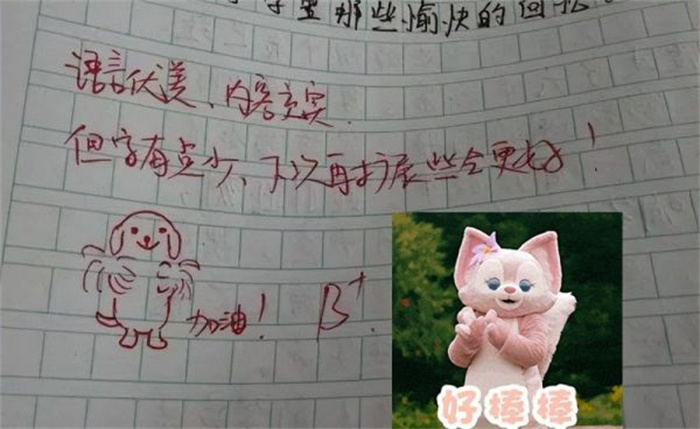 那些愉快的回忆
语言优美、内容充实
但字有点少、下次再扩展些会更好！
加油！ B+
好棒棒